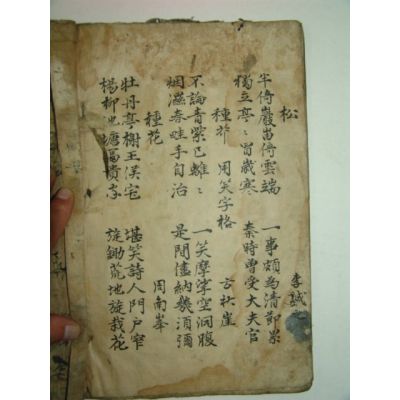 松 李誠
半倚巖崮倚雲端 一事頗為清節累
獨立亭〻留歲寒 秦時曾受大夫官
種芥 用笑字格 方秋崖
不論青紫已離〻 一笑摩挲空洞腹
烟滋春畦手自治 是間儘納幾須彌
種花 周南峯
牡丹亭榭王侯宅 堪笑詩人門戶窄
楊柳池塘富貴家 旋鋤荒地旋栽花